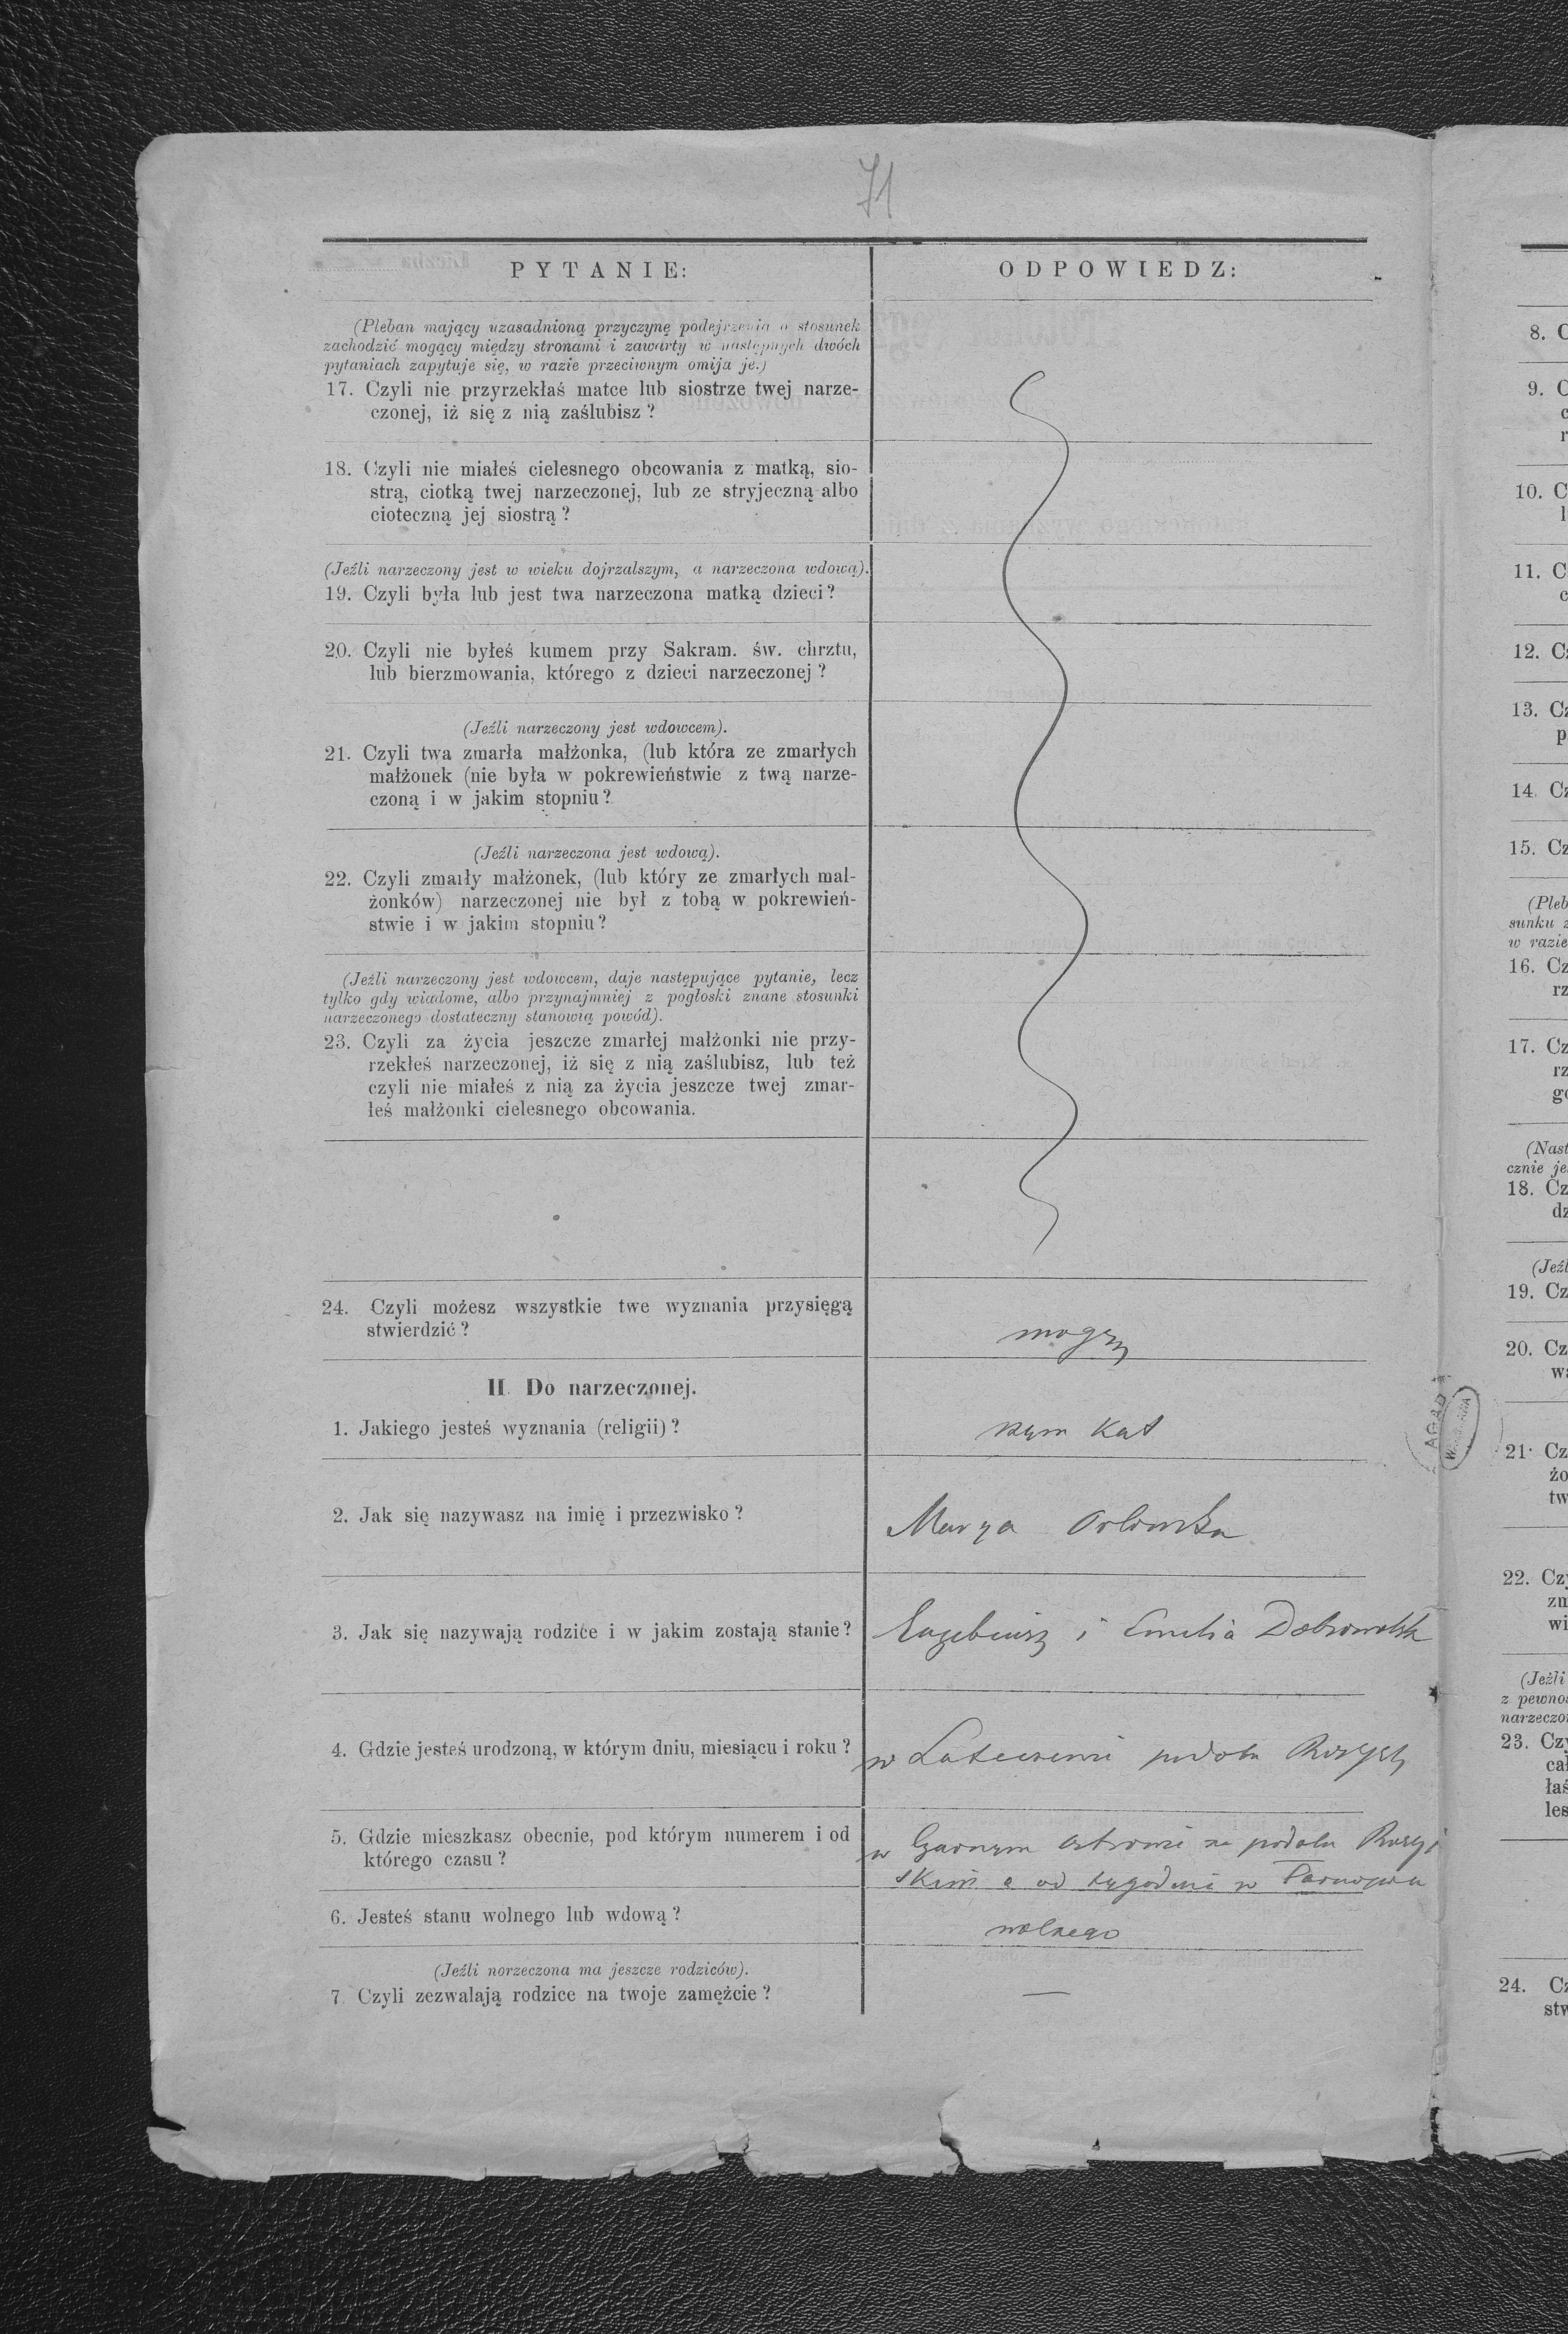 71
PYTANIE:
ODPOWIEDZ:
(Pleban mający uzasadnioną przyczynę podejrzenia o stosunek
zachodzić mogący między stronami i zawarty w następnych dwóch
pytaniach zapytuje się, w razie przeciwnym omija je.)
17. Czyli nie przyrzekłaś matce lub siostrze twej narze-
czonej, iż się z nią zaślubisz ?
18. Czyli nie miałeś cielesnego obcowania z matką, sio-
strą, ciotką twej narzeczonej, lub ze stryjeczną albo
cioteczną jej siostrą ?
(Jeźli narzeczony jest w wieku dojrzalszym, a narzeczona wdową).
19. Czyli była lub jest twa narzeczona matką dzieci ?
20. Czyli nie byłeś kumem przy Sakram. św. chrztu,
lub bierzmowania, którego z dzieci narzeczonej ?
(Jeźli narzeczony jest wdowcem).
21. Czyli twa zmarła małżonka, (lub która ze zmarłych
małżonek (nie była w pokrewieństwie z twą narze-
czoną i w jakim stopniu ?
(Jeźli narzeczona jest wdową).
22. Czyli zmarły małżonek, (lub który ze zmarłych mał-
żonków) narzeczonej nie był z tobą w pokrewień-
stwie i w jakim stopniu ?
(Jeźli narzeczony jest wdowcem, daje następujące pytanie, lecz
tylko gdy wiadome, albo przynajmniej z pogłoski znane stosunki
narzeczonego dostateczny stanowią powód).
23. Czyli za życia jeszcze zmarłej małżonki nie przy-
rzekłeś narzeczonej, iż się z nią zaślubisz, lub też
czyli nie miałeś z nią za życia jeszcze twej zmar-
łeś małżonki cielesnego obcowania.
24. Czyli możesz wszystkie twe wyznania przysięgą
stwierdzić ?
mogę
II. Do narzeczonej.
1. Jakiego jesteś wyznania (religii) ?
rzym kat
2. Jak się nazywasz na imię i przezwisko ?
Marya Orłowska
3. Jak się nazywają rodzice i w jakim zostają stanie ?
i Emelia
4. Gdzie jesteś urodzoną, w którym dniu, miesiącu i roku ?
w podolu
5. Gdzie mieszkasz obecnie, pod którym numerem i od
którego czasu ?
w Czarnym Ostrowie na podolu Rosyj
skim a od tygodnia w
6. Jesteś stanu wolnego lub wdową ?
wolnego
(Jeźli norzeczona ma jeszcze rodziców).
7. Czyli zezwalają rodzice na twoje zamężcie ?
—
AGAD
8. C
9. C
c
r
10. C
l
11. C
c
12. Cz
13. Cz
p
14. Cz
15. Cz
(Pleb
sunku z
w razie
16. Cz
rz
17. Cz
rz
go
(Nast
cznie je
18. Cz
dz
(Jeźl
19. Cz
20. Cz
wa
21. Cz
żo
tw
22. Czy
zm
wi
(Jeźli
z pewnoś
narzeczon
23. Czy
cał
łaś
les
24. Cz
stw